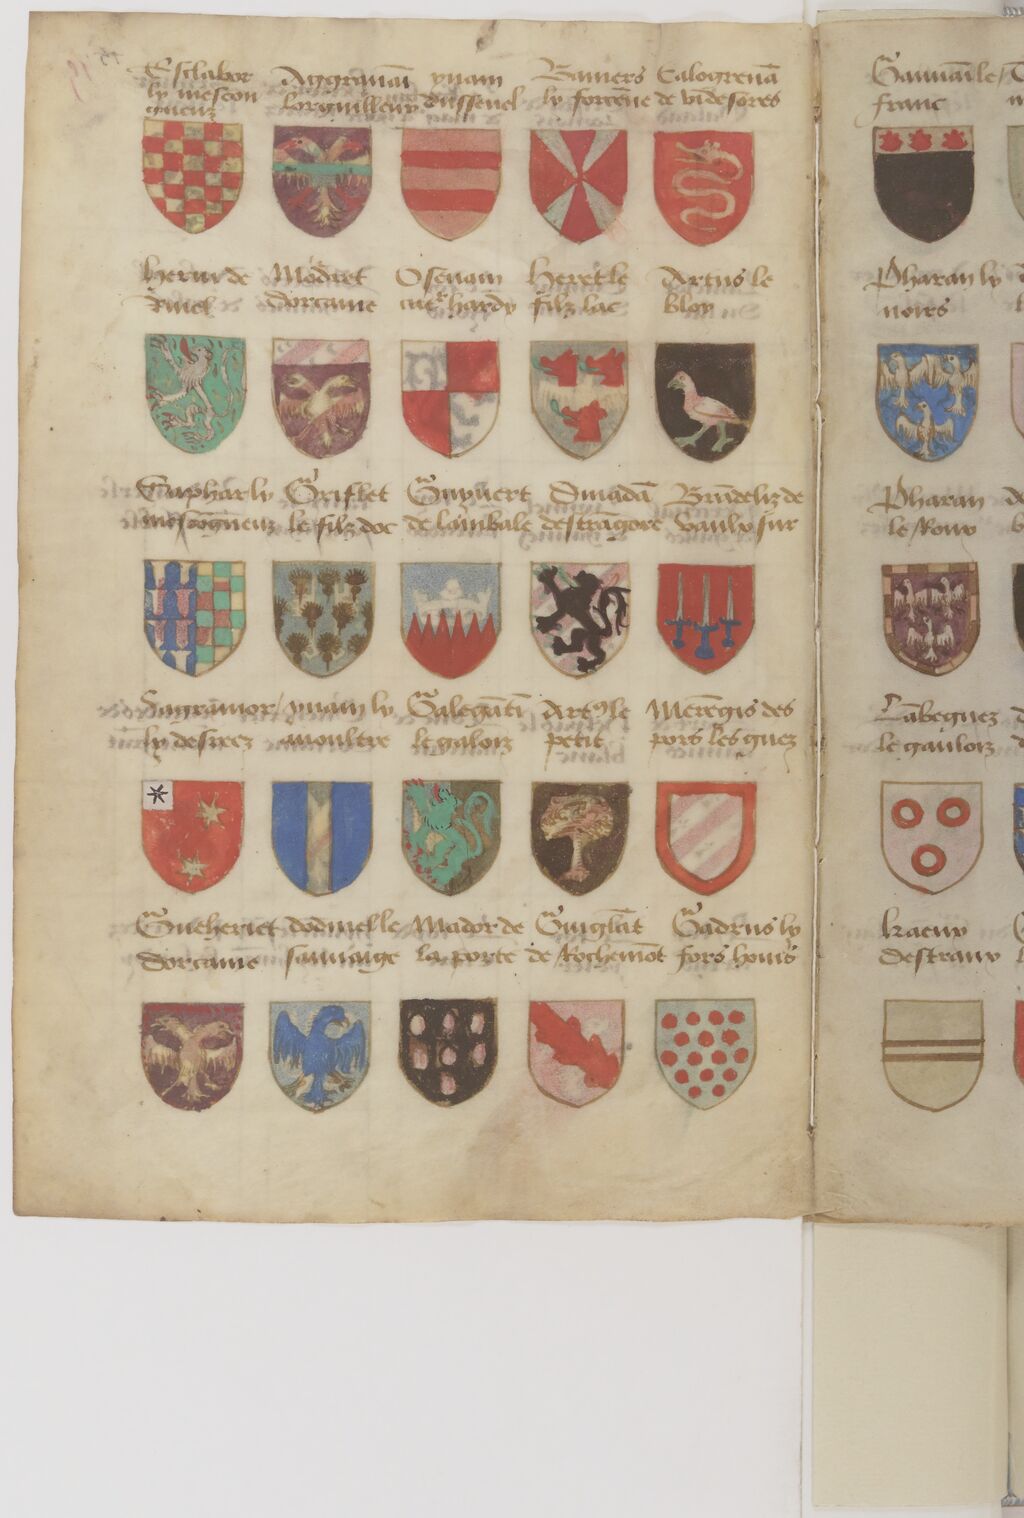 Esclabor
ly mescon
gneuz
Aggravaī
lorguilleux
yvain
dussenel
Baniers
ly forcene
Calogrenā
de vīdesores
Hervi de
Rivel
Mōdret
dorcanie
Osenain
cueᵣ hardy
Heret le
filz lac
Artus le
bloy
Taphar ly
mescōgneuz
Griflet
le filz doc
Guyvert
de lambale
Dinadā
destrāgore
Brūdeliz de
vaulx sur
Sagramor
ly desirez
yvain ly
avoultre
Galegātī
le galoiz
Artꝰ le
petit
Merēgis des
pors les guez
Gueheriet
dorcanie
dodinel le
sauvaige
Mador de
la porte
Guiglāt
de Rochemōt
Gadrus ly
fors hōns
Gauvain le
franc
Pharan ly
noirs
Pharan
le Roux
Lābeguez
le gauloiz
kaeux
destraux